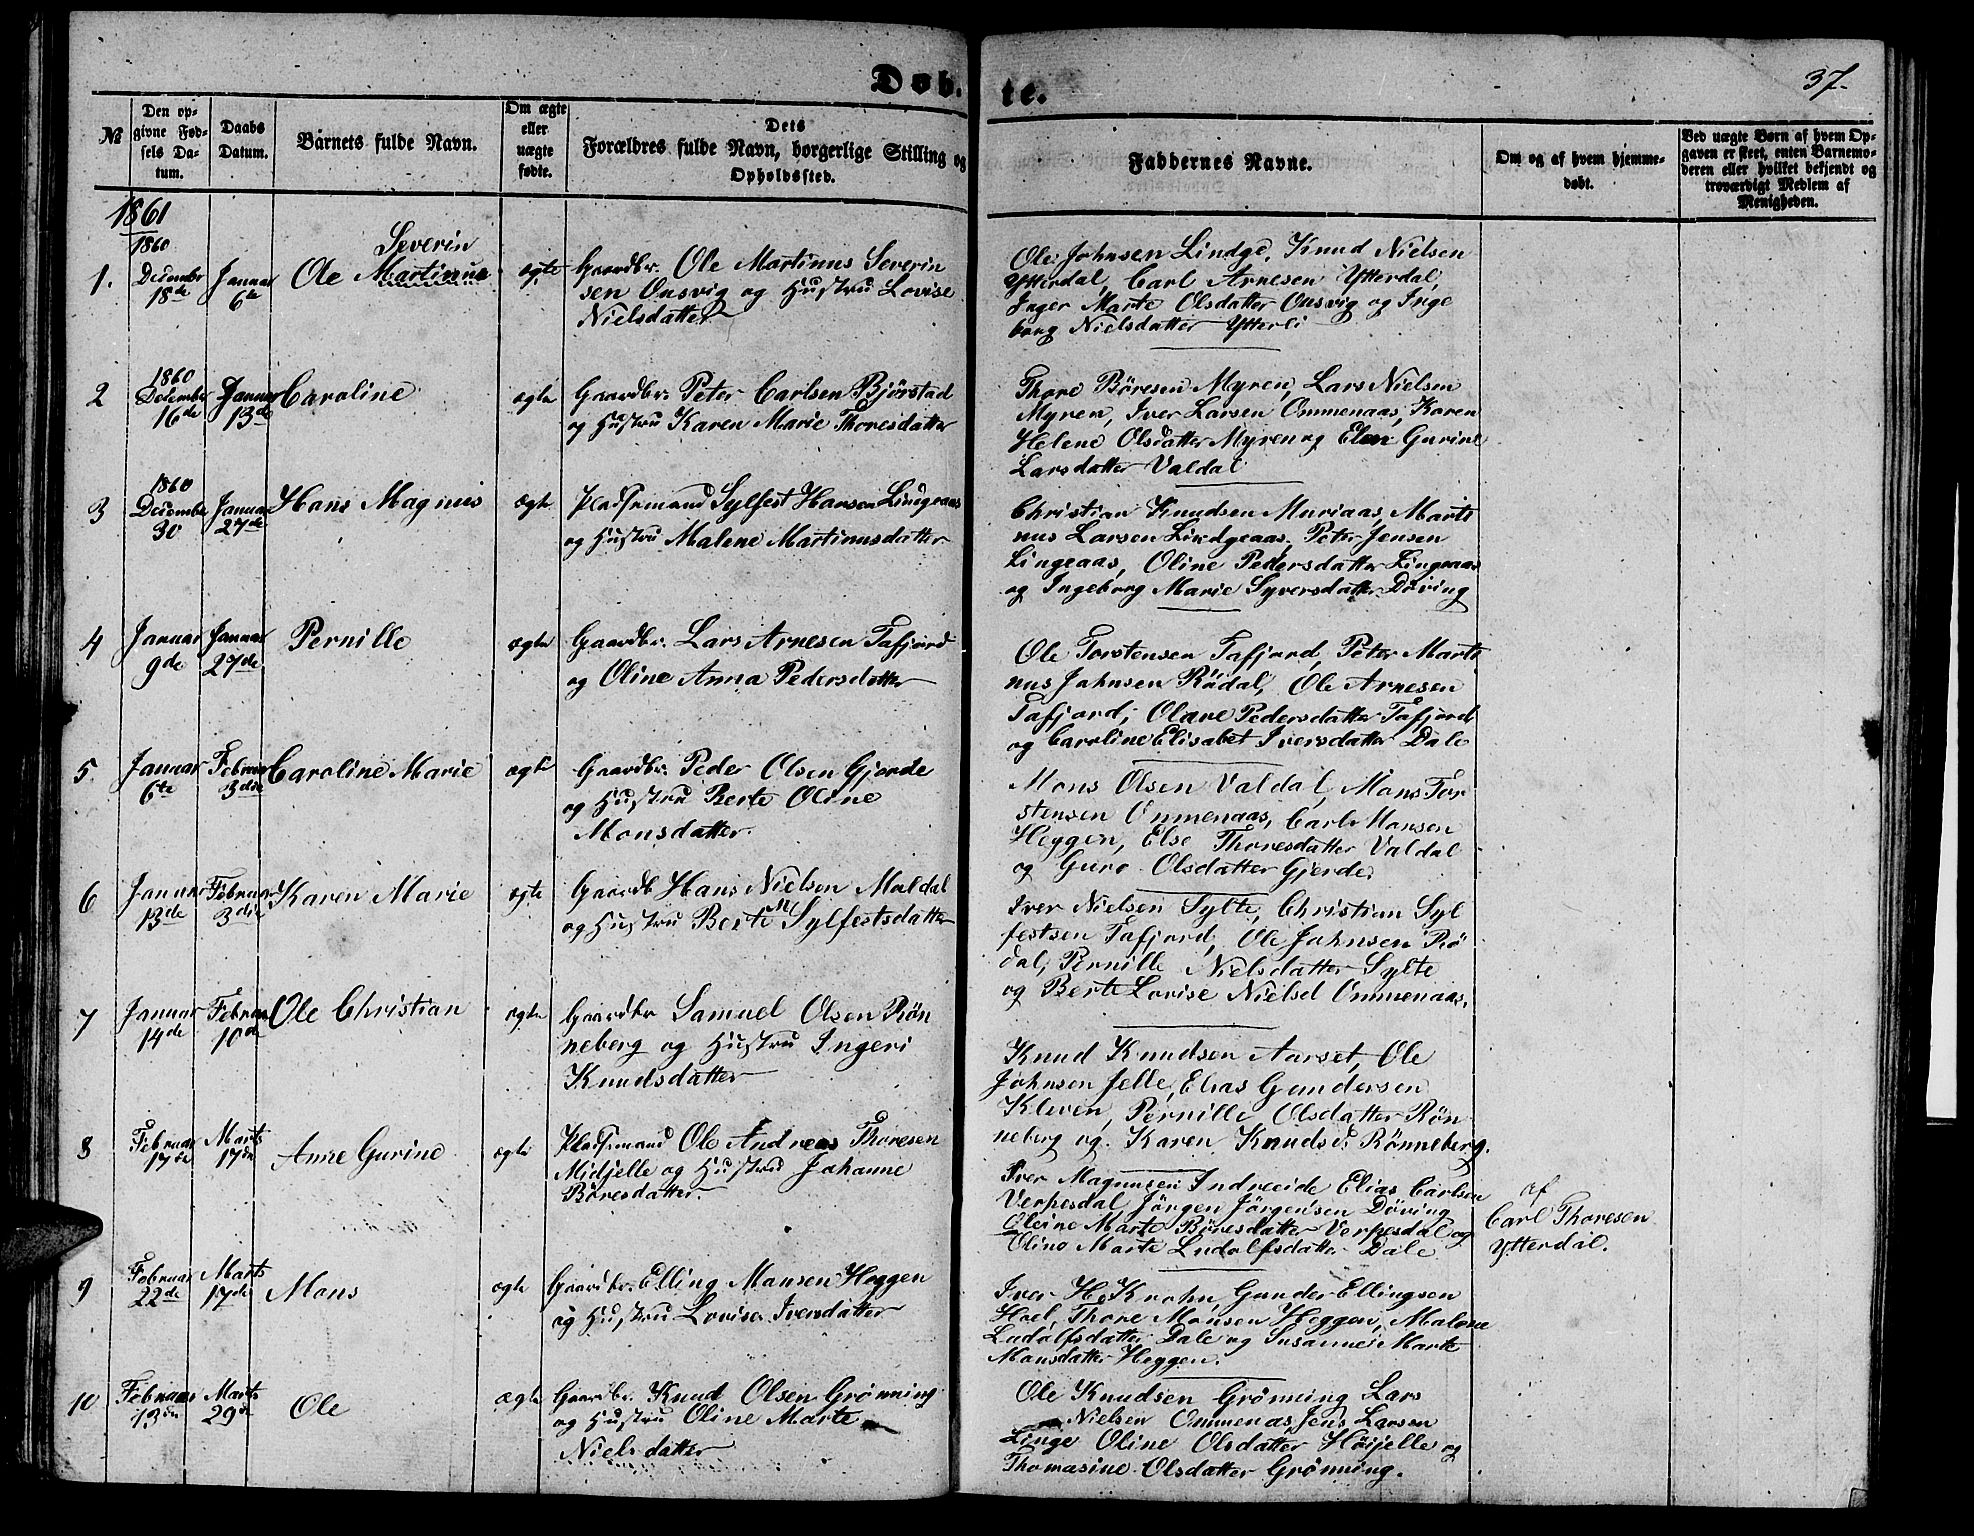 Døb.
te.
37.
№
Den op-
givne Fød-
sels Da-
tum.
Daabs
Datum.
Barnets fulde Navn.
Om ægte
eller
uægte
fødte.
Dets
Forældres fulde Navn, borgerlige Stilling og
Opholdssted.
Faddernes Navne.
Om og af hvem hjemme-
døbt.
Ved uægte Børn af hvem Op-
gaven er skeet, enten Barnemo-
deren eller hvilket bekjendt og
troværdigt Medlem af
Menigheden.
1861
1.
1860
Decembr
18de
Januar
6te
Severin
Ole Martinus
ægte
Gaardbr. Ole Martinus Severin
sen Onsvig og Hustru Lovise
Nielsdatter
Ole Johnsen Lindge, Knud Nielsen
Ytterdal, Carl Arnesen Ytterdal,
Inger Marte Olsdatter Onsvig og Inge
borg Nielsdatter Ytterli
2
1860
December
16de
Januar
13de
Caroline
ægte
Gaardbr. Peter Carlsen Bjørstad
og Hustru Karen Marie Thoresdatter
Thore Børesen Myren, Lars Nielsen
Myren, Iver Larsen Ommenaas, Karen
Helene Olsdatter Myren og Elen Gurine
Larsdatter Valdal
3
1860
Decembr
30
Januar
27de
Hans Magnus
ægte
Pladsemand Sylfest Hansen Lingeaas
og Hustru Malene Martinusdatter
Christian Knudsen Muriaas, Marti
nus Larsen Lindgeaas, Peter Jensen
Lingeaas, Oline Pedersdatter Lingeaas
og Ingeborg Marie Syversdatter Døving
4
Januar
9de
Januar
27de
Pernille
ægte
Gaardbr. Lars Arnesen Tafjord
og Oline Anna Pedersdatter
Ole Torstensen Tafjord, Peter Marti
nus Johnsen Rødal, Ole Arnesen
Tafjord, Olave Pedersdatter Tafjord
og Caroline Elisabet Iversdatter Dale
5
Januar
6te
Februar
3die
Caroline Marie
ægte
Gaardbr. Peder Olsen Gjerde
og Hustru Berte Oline
Monsdatter
Mons Olsen Valdal, Mons Tor
stensen Ommenaas, Carl Monsen
Heggen, Else Thoresdatter Valdal
og Guro Olsdatter Gjerde.
6
Januar
13de
Februar
3die
Karen Marie
ægte
Gaardb Hans Nielsen Muldal
og Hustru Berte N Sylfestsdatter
Iver Nielsen Sylte, Christian Syl
festsen Tafjord, Ole Johnsen Rø
dal, Pernille Nielsdatter Sylte
og Berte Lovise Nielsd Ommenaas.
7
Januar
14de
Februar
10de
Ole Christian
ægte
Gaardbr Samuel Olsen Røn
neberg og Hustru Ingeri
Knudsdatter
Knud Knudsen Aarset, Ole
Johnsen Jelle, Elias Gundersen
Kleven, Pernille Olsdatter Røn
neberg og Karen Knudsd. Rønneberg.
8
Februar
17de
Marts
17de
Anne Gurine
ægte
Pladsemand Ole Andreas Thoresen
Midjelle og Hustru Johanne
Børesdatter
Iver Magnusen Indreeide Elias Carlsen
Verpesdal Jørgen Jørgensen Døving
Oleine Marte Børesdatter Verpesdal og
Oline Marte Ludolfsdatter Dale
af
Carl Thoresen
Ytterdal.
9
Februar
22de
Marts
17de
Mons
ægte
Gaardbr. Elling Monsen Heggen
og Hustru Lovise Iversdatter
Iver H. Krohn, Gunder Ellingsen
Hoel, Thore Monsen Heggen, Malene
Ludolfsdatter Dale og Susanne Marte
Monsdatter Heggen.
10
Februar
13de
Marts
29de
Ole
ægte
Gaardbr. Knud Olsen Grønning
og Hustru Oline Marte
Nielsdatter
Ole Knudsen Grønning Lars
Nielsen Ommenas, Jens Larsen
Linge Oline Olsdatter Høijelle og
Thomasine Olsdatter Grønning.